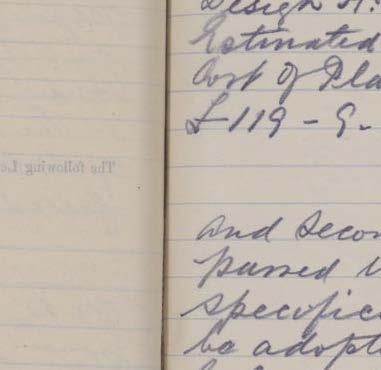 Design A.
Estimated
Cost of Pla
£-119-9-
The following Le
and Secon
passed
specifica
be adopt